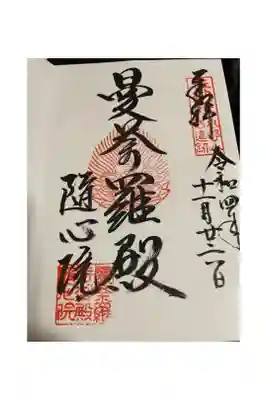 奉拝
令和四年
十一月廿二日
曼荼羅殿
随心院